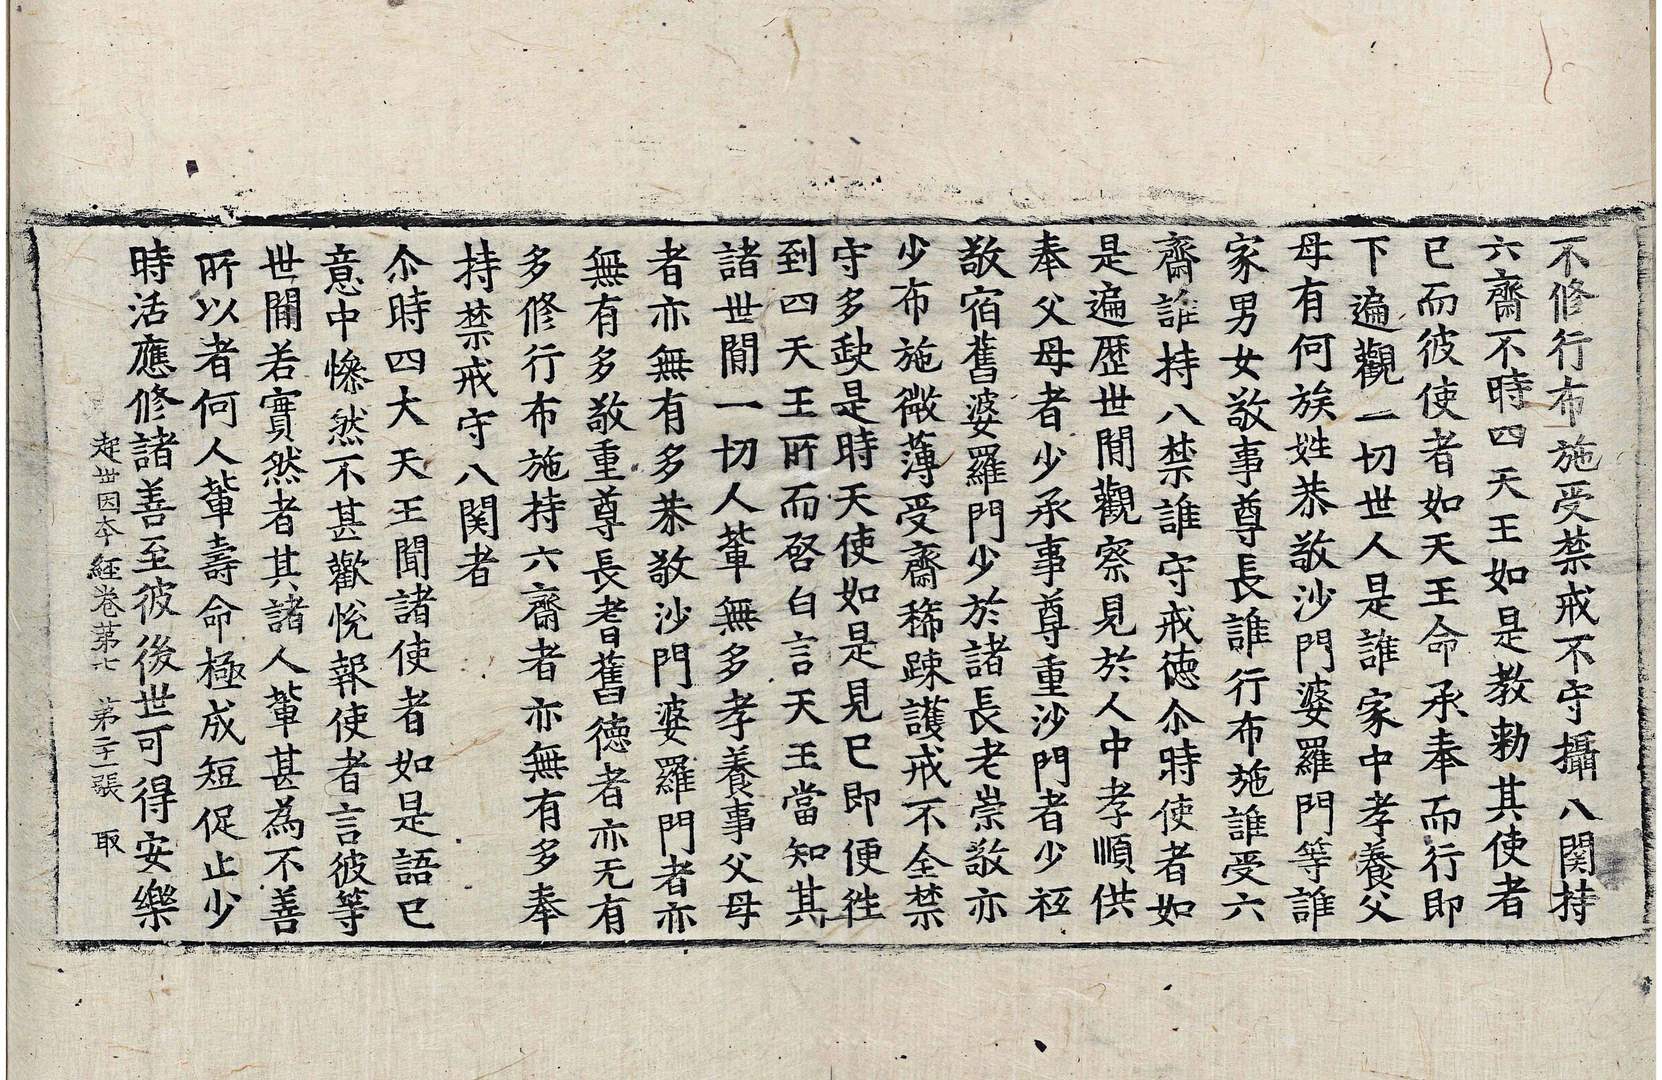 不修行布施受禁戒不守攝八関持
六齋不時四天王如是教勑其使者
已而彼使者如天王命承奉而行即
下遍觀一切世人是誰家中孝養父
母有何族姓恭敬沙門婆羅門等誰
家男女敬事尊長誰行布施誰受六
齋誰持八禁誰守戒德尒時使者如
是遍歷世間觀察見於人中孝順供
奉父母者少承事尊重沙門者少秪
敬宿舊婆羅門少於諸長老崇敬亦
少布施微薄受齋稀踈護戒不全禁
守多缺是時天使如是見已即便徃
到四天王所而啓白言天王當知其
諸世間一切人軰無多孝養事父母
者亦無有多恭敬沙門婆羅門者亦
無有多敬重尊長耆舊德者亦无有
多修行布施持六齋者亦無有多奉
持禁戒守八関者
尒時四大天王聞諸使者如是語已
意中慘然不甚歡悅報使者言彼等
世間若實然者其諸人軰甚為不善
所以者何人軰壽命極成短促止少
時活應修諸善至彼後世可得安樂
起世因本經卷第七 第二十一張 取